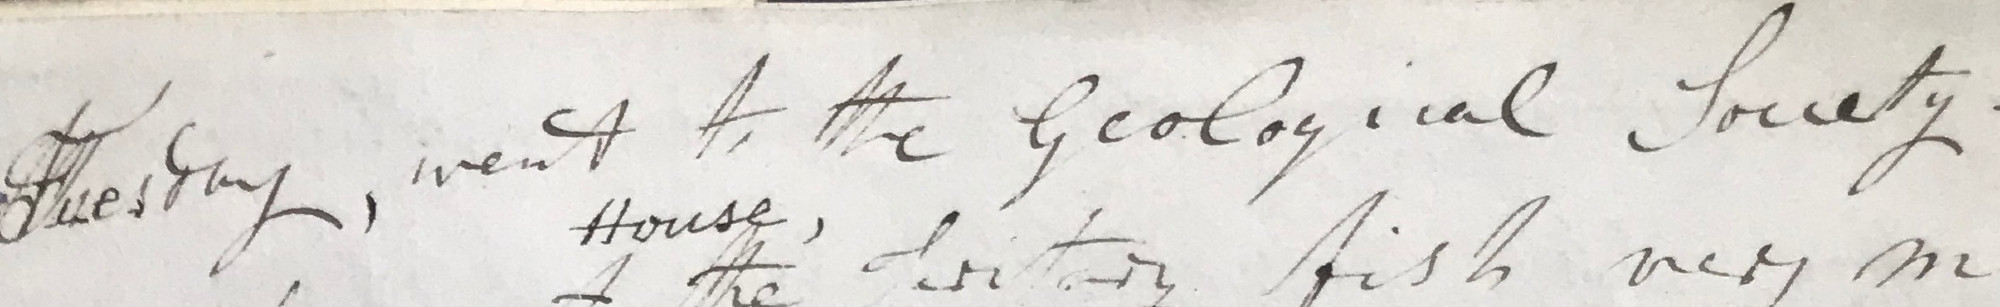 Tuesday, went to the Geological Society.
House,
the fish very